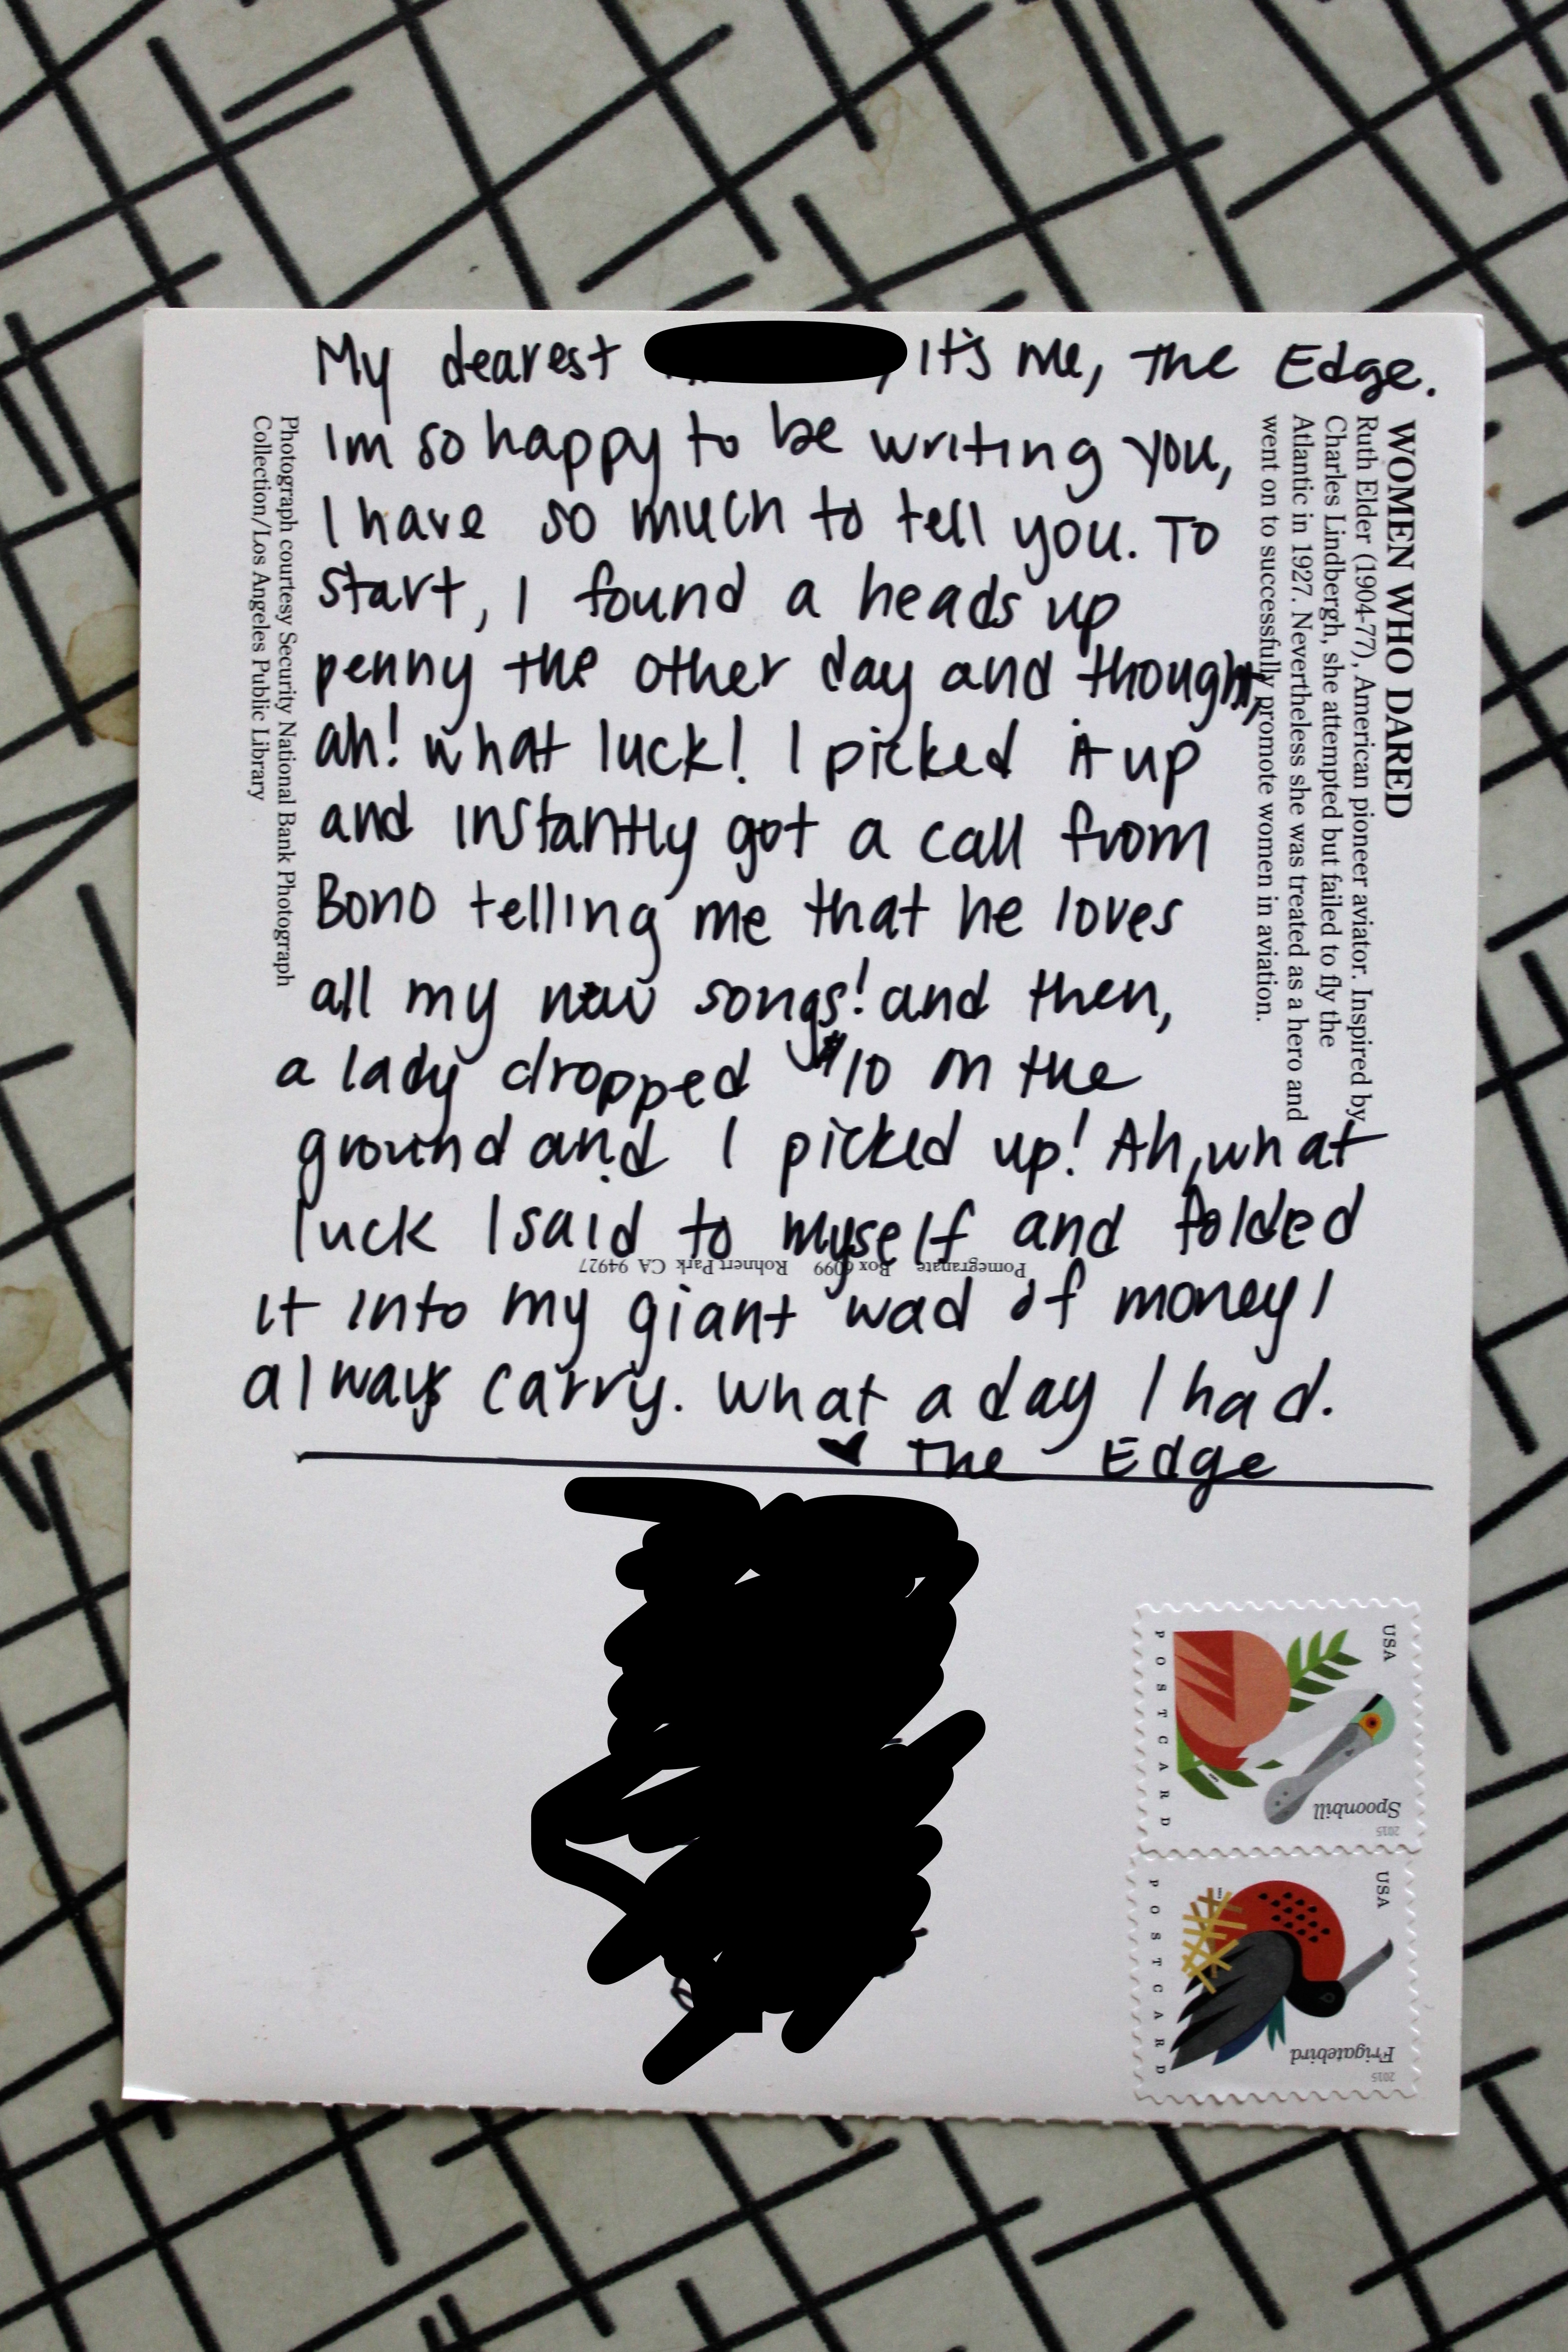 My dearest , It's me, The Edge.
Im so happy to be writing you,
I have so much to tell you. To
start, I found a heads up
penny the other day and thought,
ah! what luck! I picked it up
and instantly got a call from
Bono telling me that he loves
all my new songs! and then,
a lady dropped $10 on the
ground and I picked up! Ah, what
luck I said to myself and folded
it into my giant wad of money I
always carry. What a day I had.
♥ The Edge
WOMEN WHO DARED
Ruth Elder (1904-77), American pioneer aviator. Inspired by
Charles Lindbergh, she attempted but failed to fly the
Atlantic in 1927. Nevertheless she was treated as a hero and
went on to successfully promote women in aviation.
Photograph courtesy Security National Bank Photograph
Collection/Los Angeles Public Library
Pomegranate Box 6099 Rohnert Park CA 94927
USA
POSTCARD
Spoonbill
2015
USA
POSTCARD
Frigatebird
2015